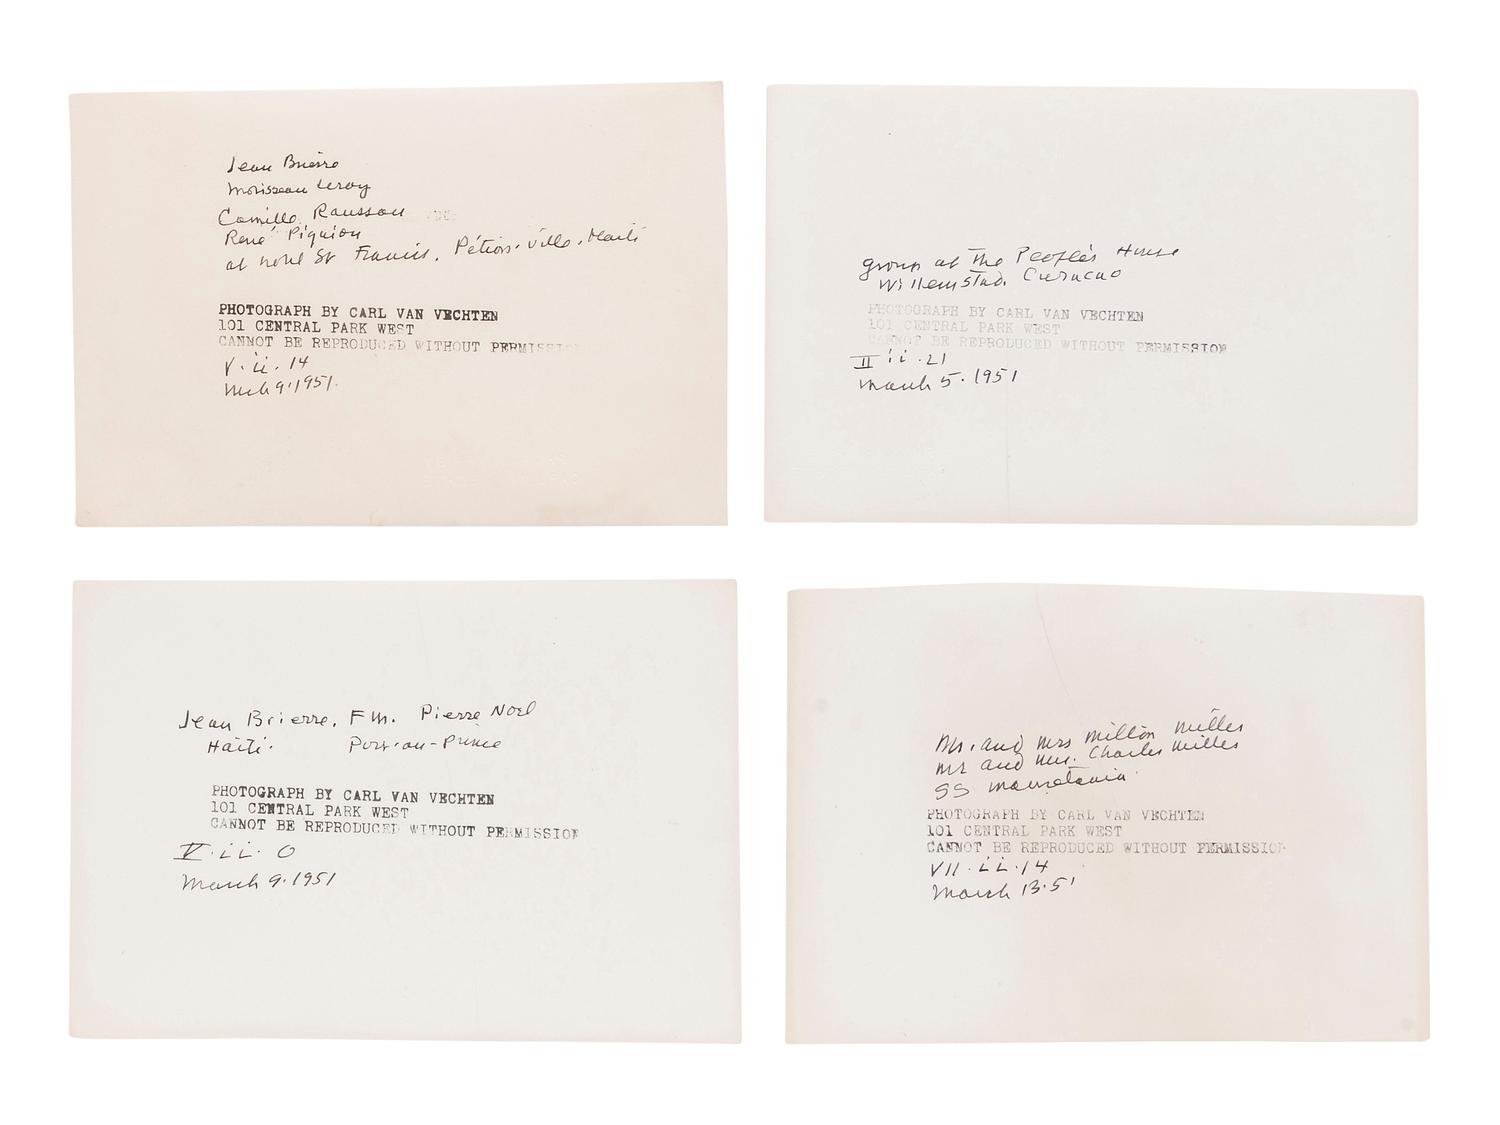 Jean Brierre
Morisseau Leroy
Camille Rousson
René Piquion
at hotel St Francis, Pétion-Ville, Haiti
PHOTOGRAPH BY CARL VAN VECHTEN
101 CENTRAL PARK WEST
CANNOT BE REPRODUCED WITHOUT PERMISSION
V. ii. 14
Mch 9. 1951.
group at The People's House
Willemstad. Curacao
PHOTOGRAPH BY CARL VAN VECHTEN
101 CENTRAL PARK WEST
CANNOT BE REPRODUCED WITHOUT PERMISSION
II ii. 21
March 5. 1951
Jean Brierre, F M. Pierre Noel
Haiti. Port-au-Prince
PHOTOGRAPH BY CARL VAN VECHTEN
101 CENTRAL PARK WEST
CANNOT BE REPRODUCED WITHOUT PERMISSION
V. ii. O
March 9. 1951
Mr. and Mrs Milton Miller
Mr and Mrs. Charles Miller
SS Mauretania
PHOTOGRAPH BY CARL VAN VECHTEN
101 CENTRAL PARK WEST
CANNOT BE REPRODUCED WITHOUT PERMISSION
VII. ii. 14
March 13. 51